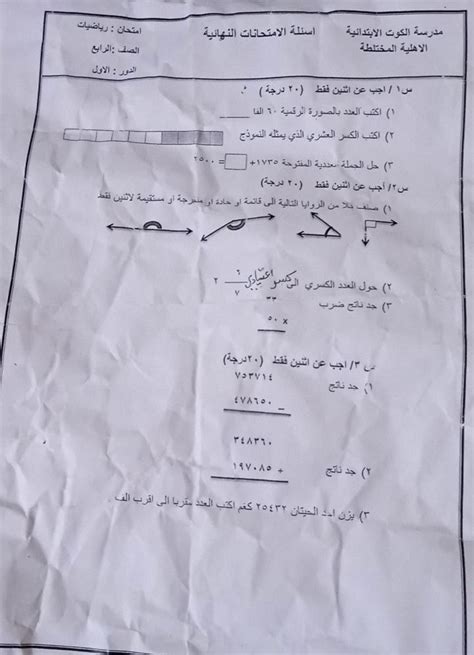 مدرسة الكوت الابتدائية اسئلة الامتحانات النهائية امتحان : رياضيات
الاهلية المختلطة الصف :الرابع
الدور : الاول
س١ / اجب عن اثنين فقط (٢٠ درجة)
١) اكتب العدد بالصورة الرقمية ٦٠ الفا ____
٢) اكتب الكسر العشري الذي يمثله النموذج
٣) حل الجملة العددية المفتوحة ١٧٣٥+ = ٢٥٠٠
س٢/ اجب عن اثنين فقط (٢٠ درجة)
١) صنف كلا من الزوايا التالية الى قائمة او حادة او منفرجة او مستقيمة لاثنين فقط
٢) حول العدد الكسري الى كسر اعتيادي ٦/٧ ٢
٣) جد ناتج ضرب ٣٣
٥٠ x
س ٣/ اجب عن اثنين فقط (٢٠درجة)
١) جد ناتج ٧٥٣٧١٤
٤٧٨٦٥٠ –
٣٤٨٣٦٠
٢) جد ناتج ١٩٧٠٨٥ +
٣) يزن احد الحيتان ٢٥٤٣٢ كغم اكتب العدد مقربا الى اقرب الف .